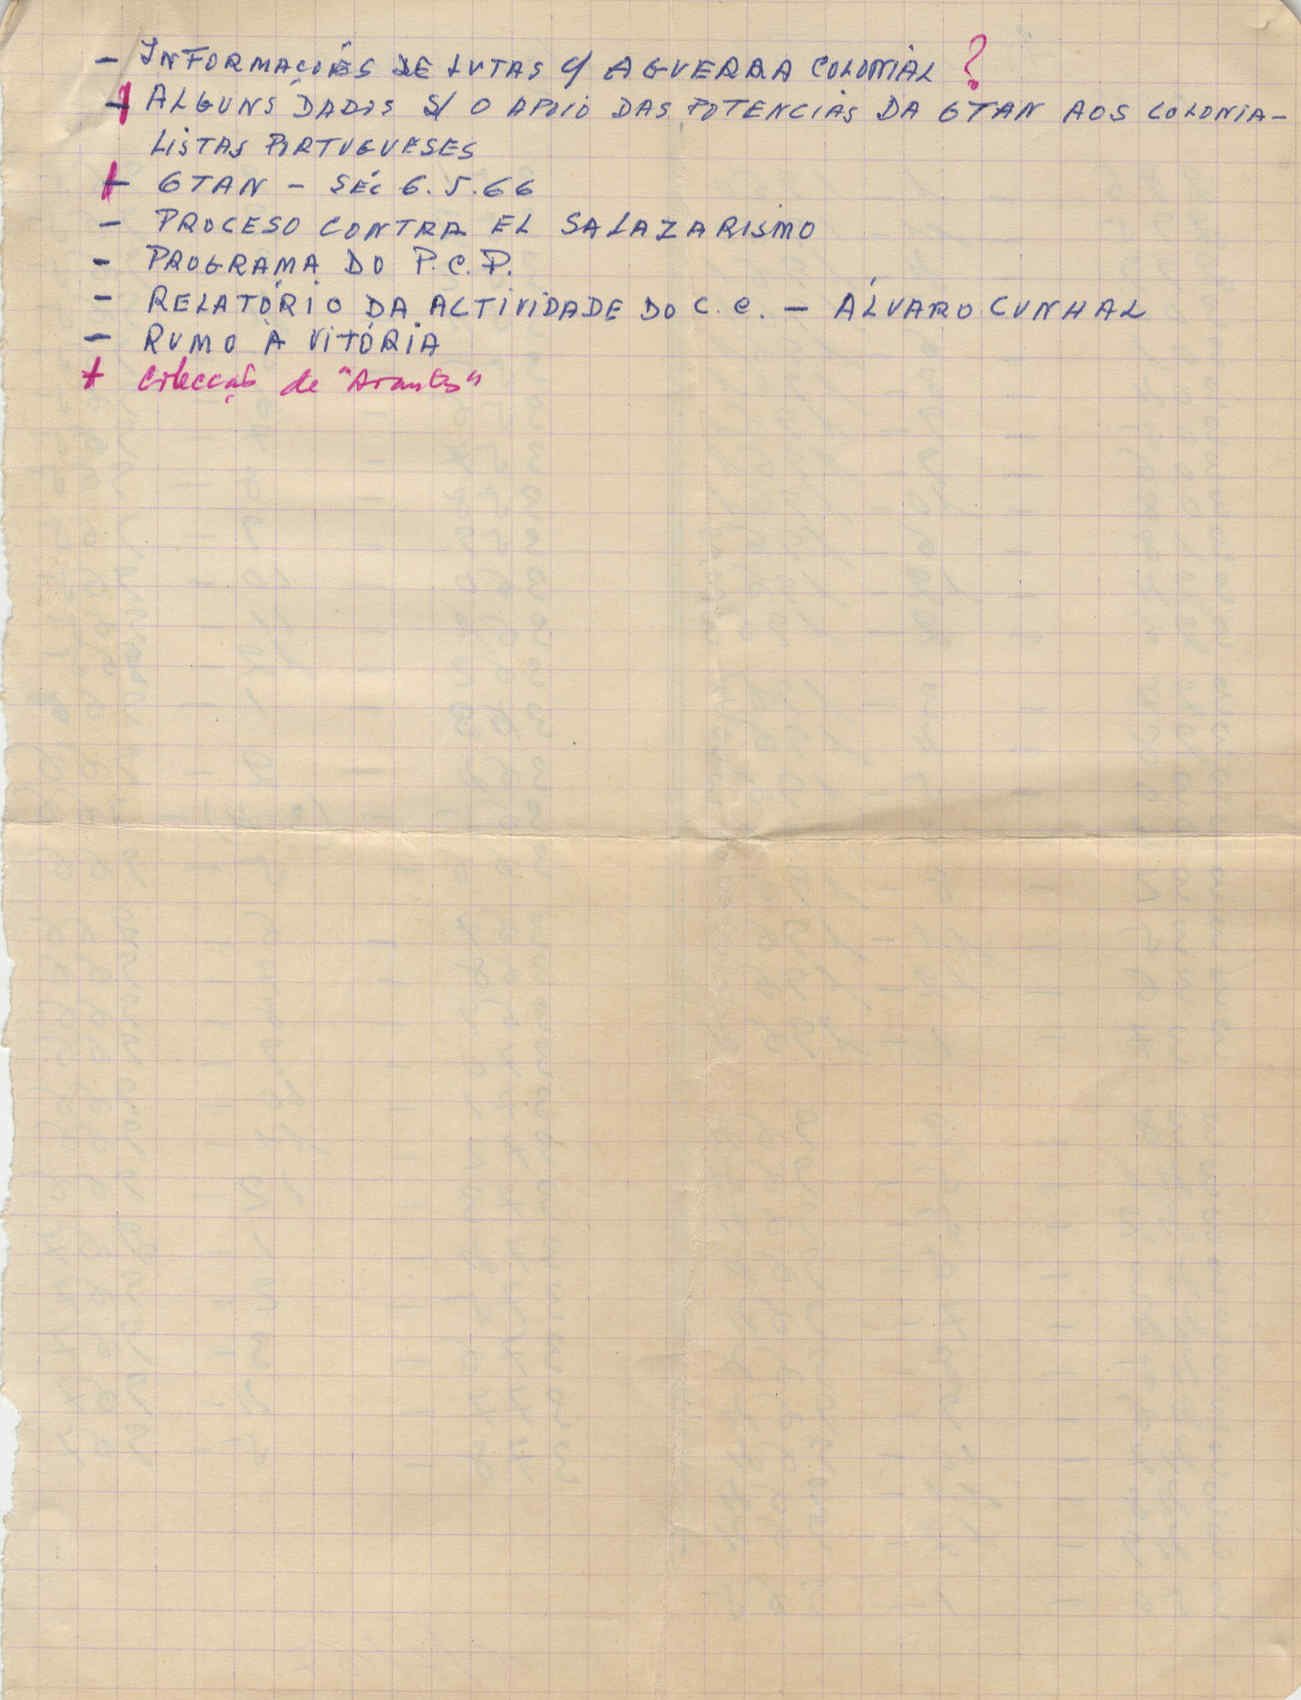 - INFORMAÇÕES DE LUTAS C/ A GUERRA COLONIAL ?
+ ALGUNS DADOS S/ O APOIO DAS POTENCIAS DA OTAN AOS COLONIA-
LISTAS PORTUGUESES
+ OTAN - SÉC 6.5.66
- PROCESO CONTRA EL SALAZARISMO
- PROGRAMA DO P.C.P.
- RELATÓRIO DA ACTIVIDADE DO C.C. - ÁLVARO CUNHAL
- RUMO À VITÓRIA
+ Colecção de "Avantes"